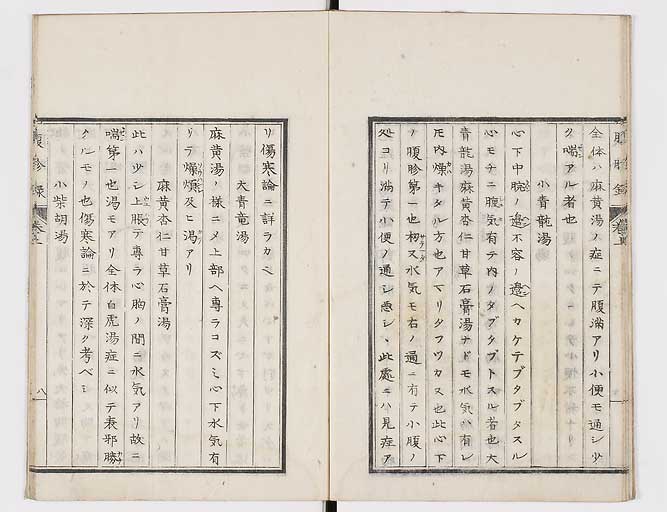 全体ハ麻黄湯ノ症ニテ腹満アリ小便モ通シ少
ク喘アル者也
小青龍湯
心下中脘ノ邉不容ノ邉ヘカケテブタブタスル
心モチニ腹気有テ内ノタブタブトスル者也大
青龍湯麻黄杏仁甘草石膏湯ナドモ水気ハ有レ
𪜈内燥キタル方也アマリタフツカス也此心下
ノ腹診第一也扨又水気モ右ノ通ニ有テ小腹ノ
処コリ満テ小便ノ通シ悪シヽ此處ニハ見症ア
リ傷寒論ニ詳ラカ也
大青竜湯
麻黄湯ノ様ニメ上部ヘ専ラコズミ心下水気有
リテ煩燥及ヒ渇アリ
麻黄杏仁甘草石膏湯
此ハ少シ上脹テ専ラ心胸ノ間ニ水気アリ故ニ
喘第一也渇モアリ全体白虎湯症ニ似テ表邪勝
クルモノ也傷寒論ニ於テ深ク考ベシ
小柴胡湯
腹診録
巻上
八